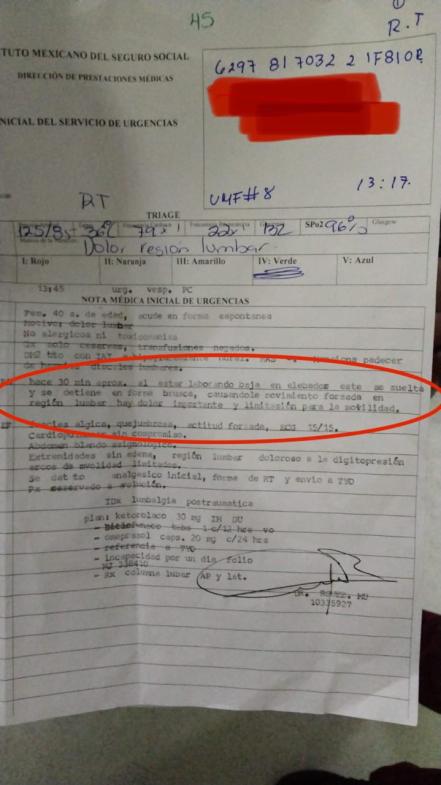 45
①
R.T
TUTO MEXICANO DEL SEGURO SOCIAL
DIRECCIÓN DE PRESTACIONES MÉDICAS
NICIAL DEL SERVICIO DE URGENCIAS
6297 81 7032 2 1F81OR
UMF#8
13:17.
RT
TRIAGE
125/85 36° 79x' 22x' 132 SPo2 96% Glasgow
Dolor region lumbar.
I: Rojo II: Naranja III: Amarillo IV: Verde V: Azul
13:45 urg. vesp. PC
NOTA MÉDICA INICIAL DE URGENCIAS
Fem. 40 a. de edad, acude en forma espontanea
Motivo: dolor lumbar
No alergicos ni toxicomania
Qx solo cesarea, transfusiones negados.
DM2 tto con hipoglucemiante padecer
de hernias discales lumbares.
hace 30 min aprox. al estar laborando baja en elebador este se suelta
y se detiene en forma brusca, causandole movimiento forzada en
región lumbar hay dolor importante y limitación para la movilidad.
EF facies algica, quejumbrosa, actitud forzada, SCG 15/15.
Cardiopulmonar sin compromiso.
Abdomen blando
Extremidades sin edema, región lumbar doloroso a la digitopresión
arcos de movilidad limitados.
Se da tto analgesico inicial, forma de RT y envio a TYO
Px reservado a evolución.
IDx lumbalgia postraumatica
plan: ketorolaco 30 mg IM DU
- Diclofenaco tabs 1 c/12 hrs vo
- omeprazol caps. 20 mg c/24 hrs
- referencia a TYO
- incapacidad por un dia folio
- RX columna lumbar AP y lat.
10335927